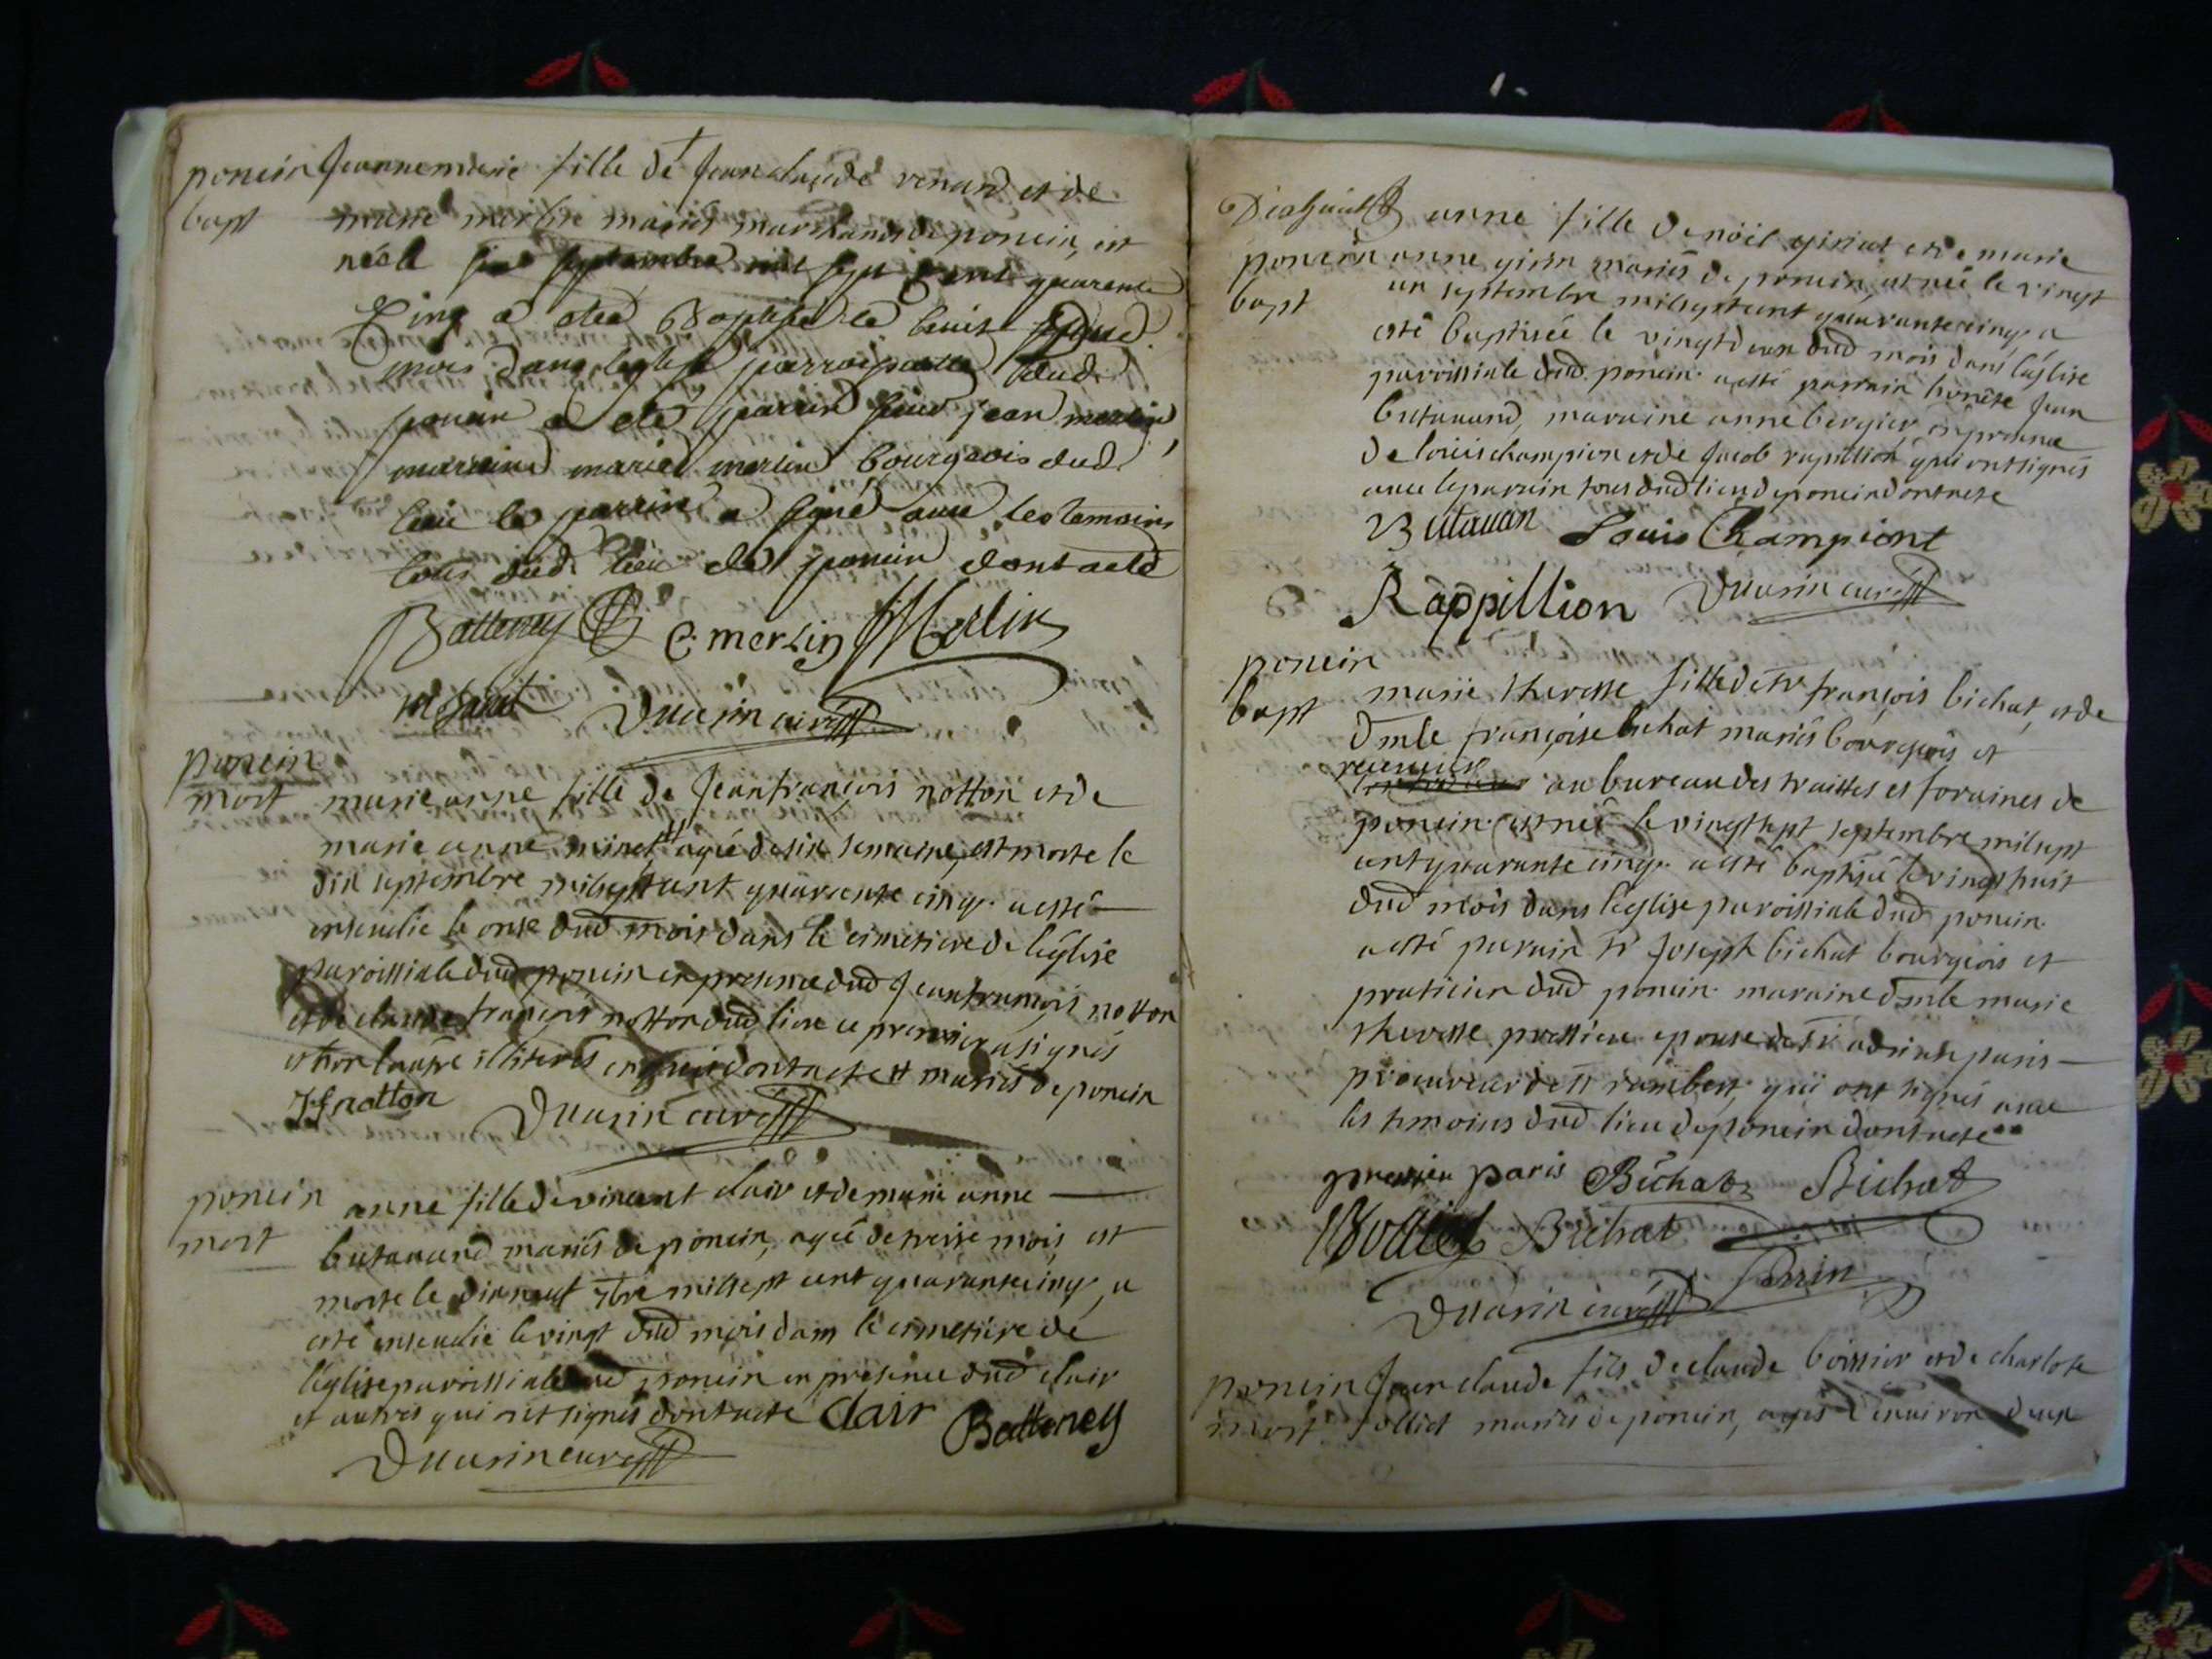 poncin Jeanne marie fille de Jean claude renard et de
bapt marie merlin mariés marchands de poncin, est
née le six septembre mil sept cent quarante
Cinq a eté Baptisé le huit dud
mois dans leglise parroissialle dud
poncin a eté parrin sieur jean merlin
marraine marie merlin bourgeois dud
lieu le parrin a signé avec les temoins
tous dud lieu de poncin dont acte
Batteney C. merlin Merlin
Duarin curé
poncin
mort marie anne fille de Jean françois notton et de
marie anne minet agée de six semaines, est morte le
dix septembre mil sept cent quarante cinq. a esté
ensevelie le onze dud mois dans le cimetiere de l'église
paroissiale dud poncin en presence dud Jean françois notton
et de claude françois notton dud lieu ce premier a signés
et non l'autre illiterés enquis dont acte mariés de poncin
Jf notton Duarin curé
poncin anne fille de vincent clair et de marie anne
mort butavand mariés de poncin, agée de treise mois est
morte le dix neuf 7bre mil sept cent quarante cinq, a
esté ensevelie le vingt dud mois dans le cimetiere de
l'église paroissiale dud poncin en presence dud clair
et autres qui ont signés dont acte Clair Batteney
Duarin curé
anne fille de noël giriat et de marie
poncin anne girin mariés de poncin, est née le vingt
bapt un septembre mil sept cent quarante cinq. a
esté baptisée le vingt deux dud mois dans l'église
paroissiale dud poncin. a esté parrain honête Jean
butavand, maraine anne bergier en presence
de louis champion et de Jacob rapillion qui ont signés
avec le parain tous dud lieu de poncin dont acte
Butavan Louis Championt
Rappillion Duarin curé
poncin
bapt marie therese fille de sr françois bichat, et de
dmle françoise bichat mariés bourgeois et
receveur au bureau des traittes et foraines de
poncin. est née le vingt sept septembre mil sept
cent quarante cinq. a esté baptisée le vingt huit
dud mois dans l'église paroissiale dud poncin.
a esté parain sr Joseph bichat bourgeois et
praticien dud poncin. maraine dmle marie
therese pressieu epouse de sr adrien paris
procureur de st rambert, qui ont signés avec
les temoins dud lieu de poncin dont acte
pressieu paris Bichat Bichat
Bichat
Duarin curé Perrin
poncin Jean claude fils de claude boissier et de charlote
mort tolliet mariés de poncin, agés d'environ deux